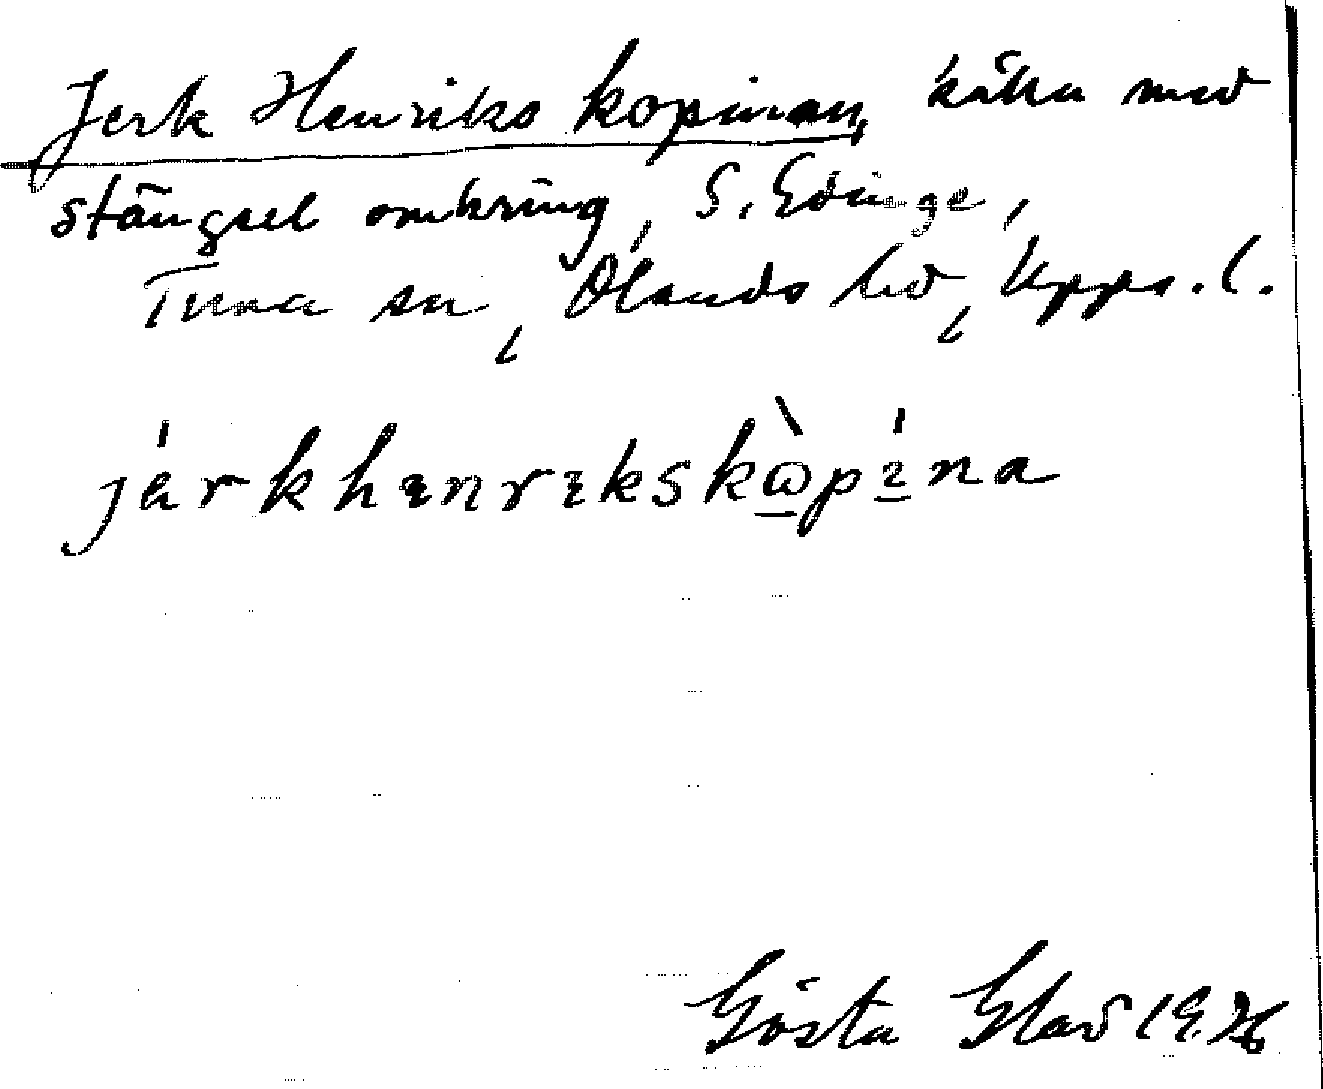 Jerk Henriks kopinan, kåta med
stängsel omkring, S. Edinge,
Tuna sn, Olands hd, Upps. l.
järkhenrikskòpína
Gösta Glad 1926